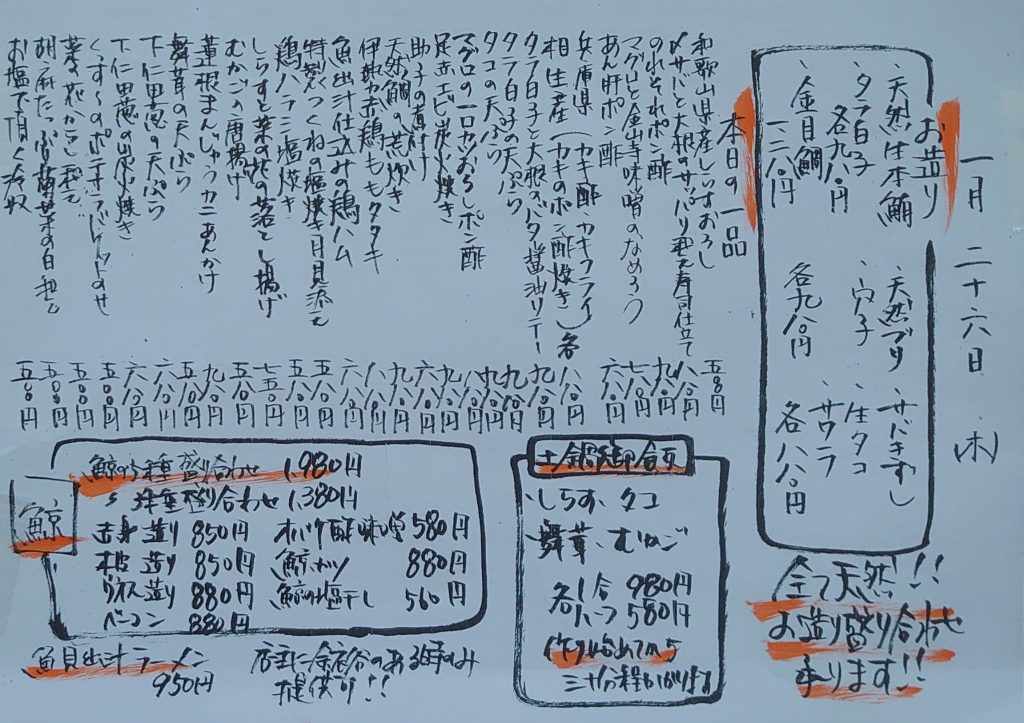 一月二十六日 木
お造り
、天然生本鮪
、タラ白子
各九八〇円
、金目鯛
一二八〇円
、天然ブリ
、穴子
各九八〇円
、サバきずし
、生タコ
、サワラ
各八八〇円
全て天然!!
お造り盛り合わせ
承ります!!
本日の一品
和歌山県産しらすおろし 五八〇円
〆サバと大根のサッパリ和え寿司仕立て 八八〇円
のれそれポン酢 九八〇円
マグロと金山寺味噌のなめろう 七八〇円
あん肝ポン酢 六八〇円
兵庫県
相生産(カキ酢・カキフライ
カキのポン酢焼き)各 八八〇円
タラ白子と大根のバタ醤油ソテー 九八〇円
タラ白子の天ぷら 九八〇円
タコの天ぷら 八八〇円
マグロの一口カツおろしポン酢
足赤エビ炭火焼き
助子の煮付け
天然鯛の荒炊き
伊勢赤鶏ももタタキ
魚出汁仕込みの鶏ハム
特製つくねの塩焼き月見添え
鶏ハラミ塩焼き
しらすと菜の花の落とし揚げ
むかごの唐揚げ
蓮根まんじゅうカニあんかけ
舞茸の天ぷら
下仁田葱の天ぷら
下仁田葱の炭火焼き
くっすんのポテサラバケットのせ
菜の花からし和え
胡麻たっぷり菊菜の白和え
お塩で頂く冷奴
鯨
鯨の5種盛り合わせ 1,980円
〃 3種盛り合わせ 1,380円
赤身造り 850円
本皮造り 850円
ウネス造り 880円
ベーコン 880円
オバケ酢味噌 580円
鯨カツ 880円
鯨の塩干し 560円
魚貝出汁ラーメン
950円
店主に余裕のある時のみ
提供り!!
土鍋御飯
、しらす、タコ
舞茸、むかご
各1合 980円
ハーフ 580円
作り始めてから
三十分程かかります